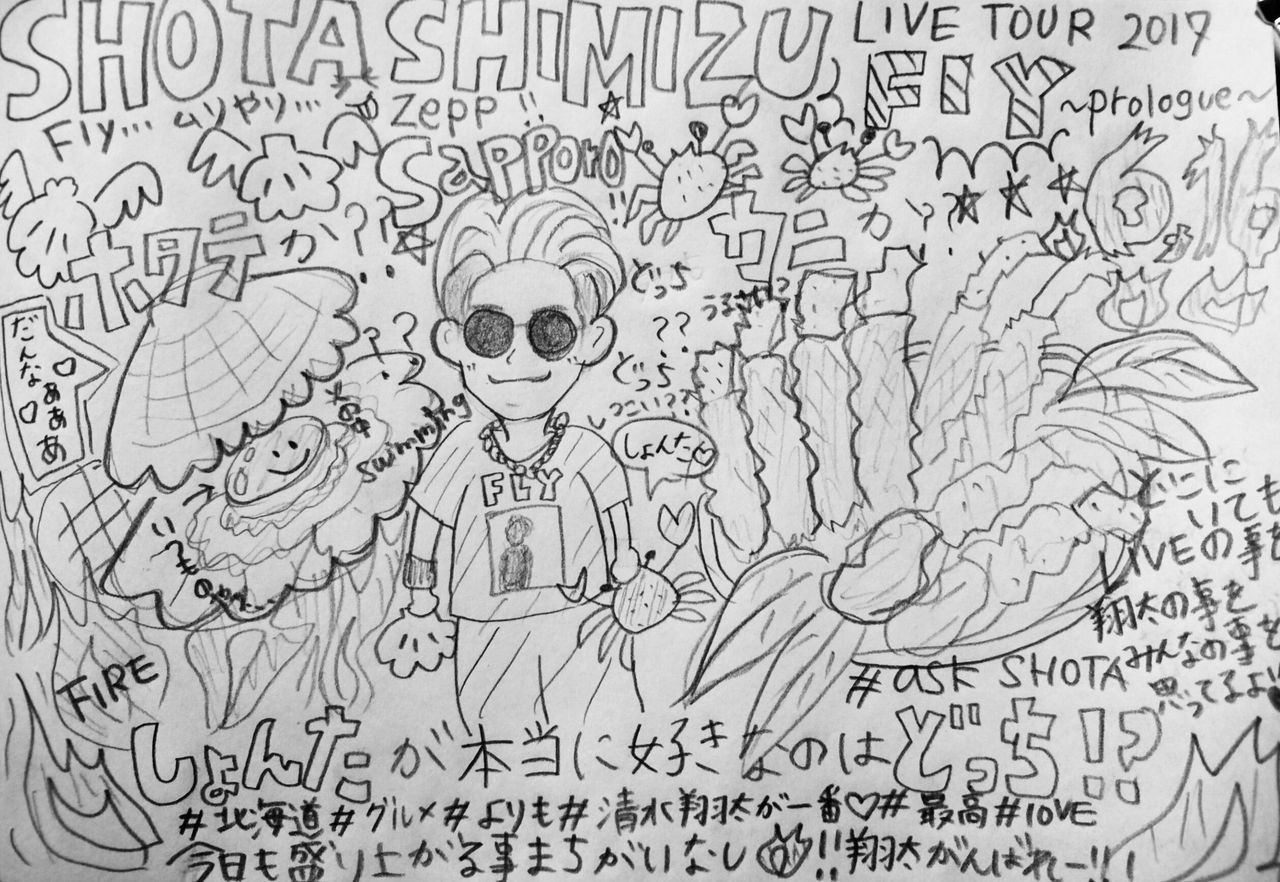 SHOTA SHIMIZU LIVE TOUR 2017
FLY ~prologue~
Fly... ムリやり...
Zepp!!
SAPPORO!!
6.16
ホタテか??
カニか??
どっち
??
どっち
うるさい?
しつこい??
だんなぁぁぁ
しょんた
swimming
いつもの
FLY
FIRE
どこに
いても
LIVEの事を
翔太の事を
みんなの事を
思ってるよ
#ask SHOTA
しょんたが本当に好きなのはどっち!?
#北海道#グルメ#よりも#清水翔太が一番♡#最高#love
今日も盛り上がる事まちがいなし!!翔太がんばれー!!!